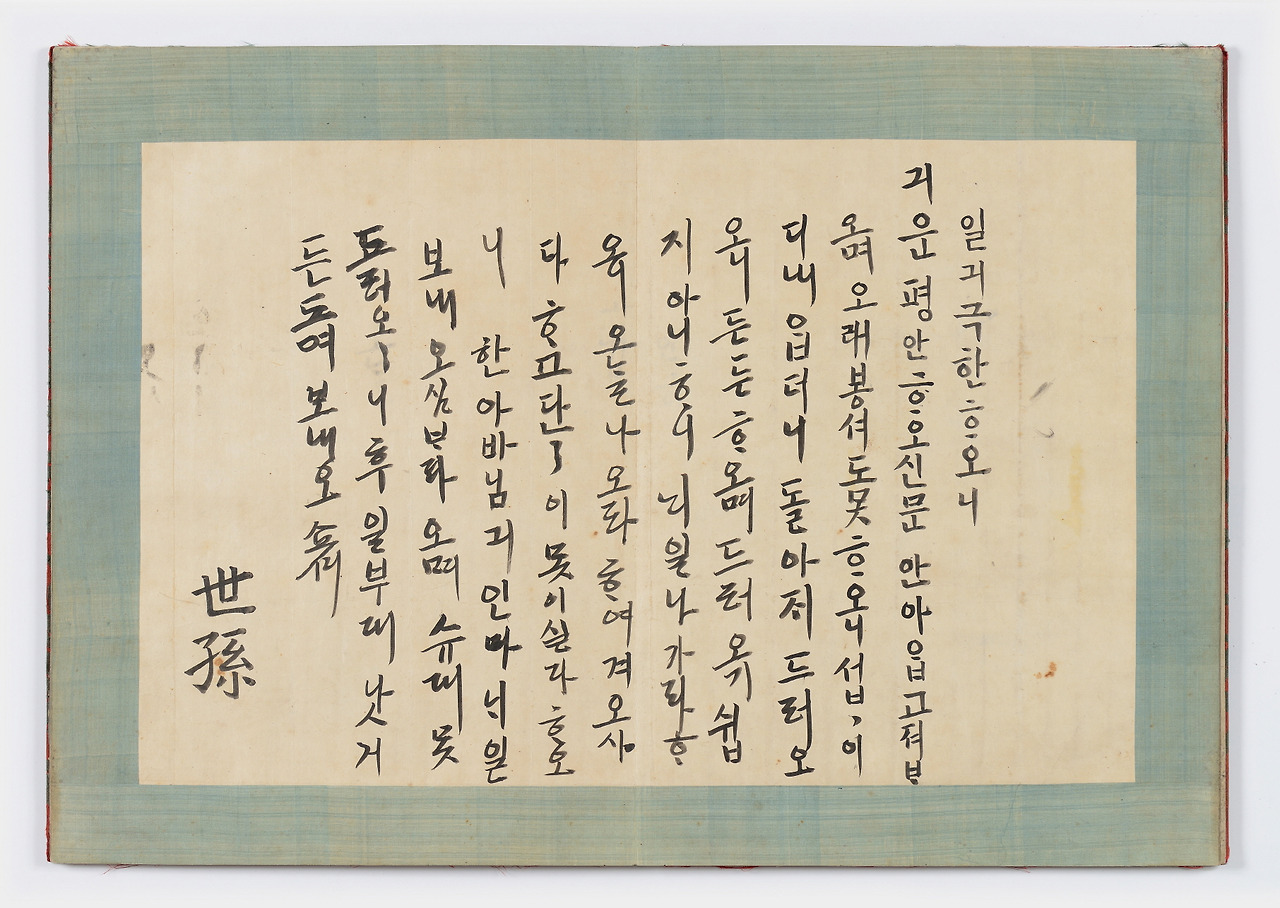 일긔극한ᄒᆞ오니
긔운 평안ᄒᆞ오신 문안 아ᄋᆞᆸ고져 ᄇᆞ라
오며 오래 봉셔도 못 ᄒᆞ오니 섭섭이
디내ᄋᆞᆸ더니 돌아재 드러오
오니 든든ᄒᆞ오며 드러오기 쉽
지 아니ᄒᆞ니 ᄂᆡ일 나가라 ᄒᆞ
오니 오ᄂᆞᆯ 나오라 ᄒᆞ여 겨오샤
다 ᄒᆞ고 단단이 못 이실다 ᄒᆞ오
니 한아바님긔 인마 ᄂᆡ일
보내오심 ᄇᆞ라오며 슈대 못
드려오오니 후일 부대 낫거
든 보내오쇼셔
世孫